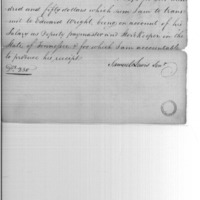 dred and fifty dollars which sum I am to trans
mit to Edward Wright, being on account of his
Salary as Deputy paymaster and Storekeeper, in the
State of Tennessee & for which I am accountable
to produce his receipt.
Samuel Lewis Senr.